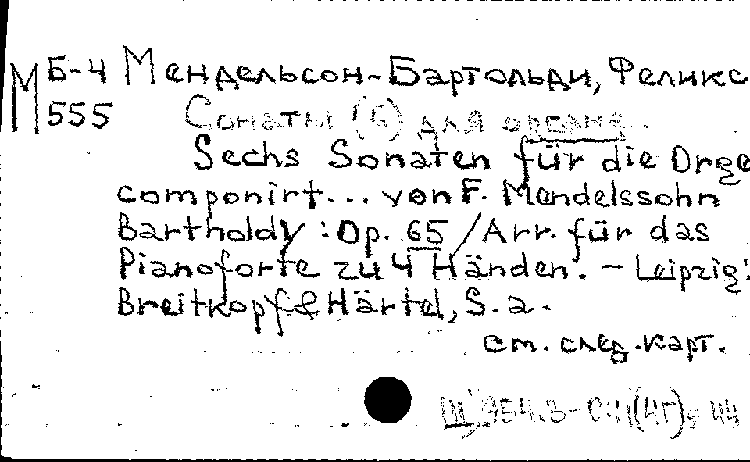 М Б-4 Мендельсон-Бартольди, Феликс
555 Сонаты (6) для органа.
Sechs Sonaten für die Orge
componirt... von F. Mendelssohn
Bartholdy : Op. 65 / Arr. für das
Pianoforte zu 4 Händen. - Leipzig:
Breitkopf & Härtel, S. a.
см. след. карт.